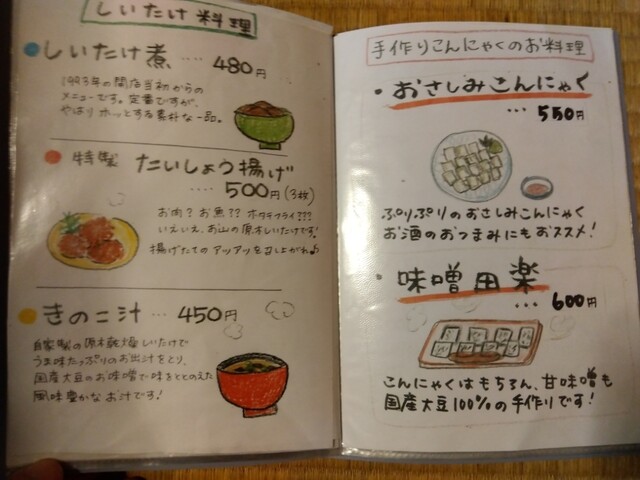 しいたけ料理
しいたけ煮 ···· 480円
1993年の開店当初からの
メニューです。定番ですが、
やはりホッとする素朴な一品。
特製 たいしょう揚げ
···· 500円(3枚)
お肉？お魚??ホタテフライ???
いえいえ、お山の原木しいたけです!
揚げたてのアツアツを召し上がれ♪
きのこ汁 ··· 450円
自家製の原木乾燥しいたけで
うま味たっぷりのお出汁をとり、
国産大豆のお味噌で味をととのえた
風味豊かなお汁です!
手作りこんにゃくのお料理
・おさしみこんにゃく
··· 550円
ぷりぷりのおさしみこんにゃく
お酒のおつまみにもおススメ!
・味噌田楽
··· 600円
こんにゃくはもちろん、甘味噌も
国産大豆100%の手作りです!